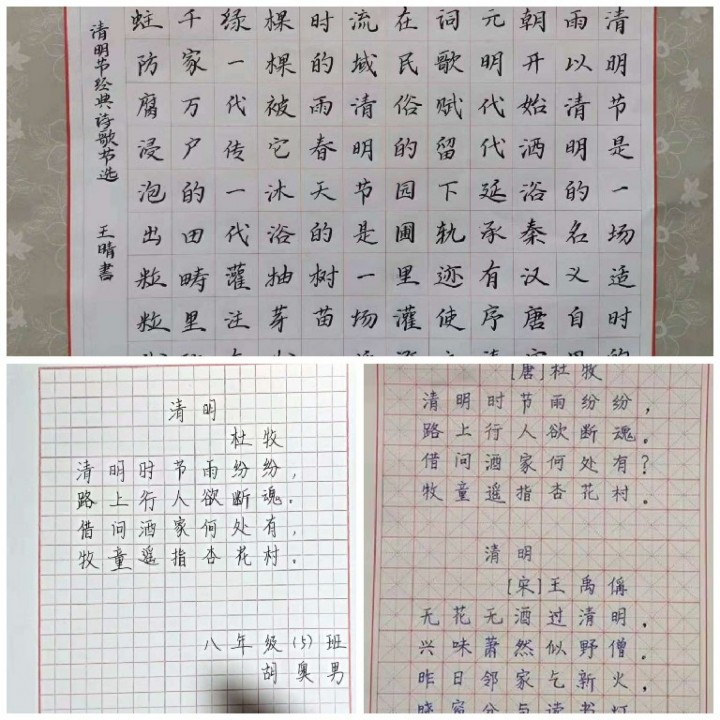 清明节是一场适时
雨以清明的名义自
朝开始洒浴秦汉唐
元明代代延承有序
词歌赋留下轨迹使
在民俗的园圃里灌
流域清明节是一场
时的雨春天的树苗
棵棵被它沐浴抽芽
绿一代传一代灌注
千家万户的田畴里
蛀防腐浸泡出粒粒
清明节经典诗歌节选 王晴書
清明
杜牧
清明时节雨纷纷,
路上行人欲断魂.
借问酒家何处有,
牧童遥指杏花村.
八年级(5)班
胡奥男
[唐]杜牧
清明时节雨纷纷,
路上行人欲断魂。
借问酒家何处有?
牧童遥指杏花村.
清明
[宋]王禹偁
无花无酒过清明,
兴味萧然似野僧.
昨日邻家乞新火,